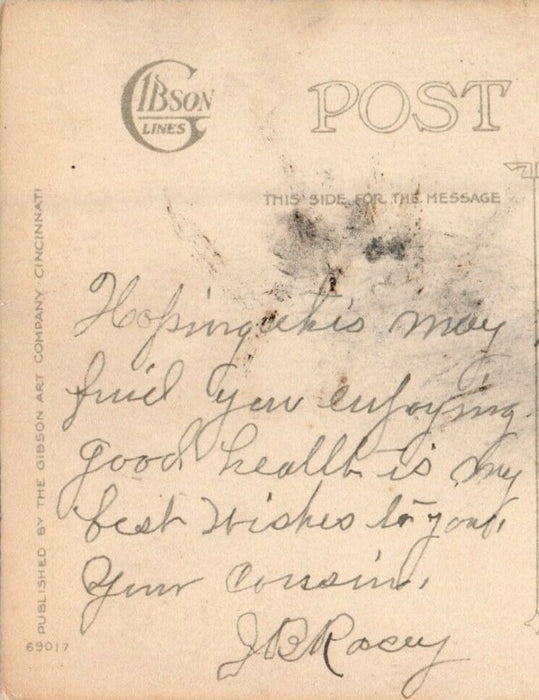 GIBSON
LINES
POST
THIS SIDE FOR THE MESSAGE
Hoping this may
find you enjoying
good health is my
best wishes to you,
Your Cousin,
J B Racey
PUBLISHED BY THE GIBSON ART COMPANY CINCINNATI
69017